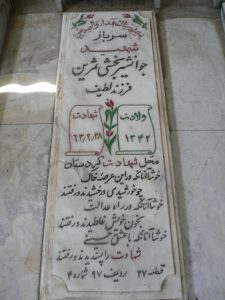 سرباز
شهید
جوانشیر بخشی شیرین
فرزند لطیف
ولادت
۱۳۴۲
شهادت
۶۳/۹/۲۸
محل شهادت کردستان
خوشا آنانکه در این عرصه خاک
چو خورشیدی درخشیدند و رفتند
خوشا آنانکه در راه عدالت
بخون خویش غلطیدند و رفتند
خوشا آنانکه با عشق
شهادت را پسندیدند و رفتند
قطعه ۲۷ ردیف ۹۷ شماره ۴